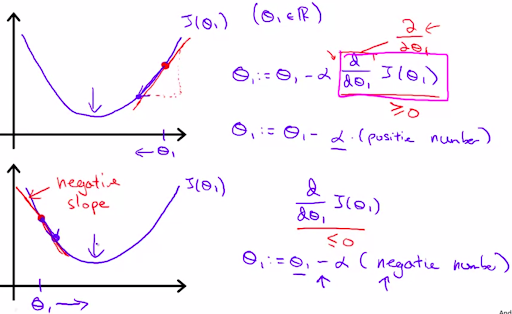 J(θ₁) (θ₁ ∈ ℝ)
∂/∂θ₁
θ₁ := θ₁ - α d/dθ₁ J(θ₁)
≥ 0
θ₁ := θ₁ - α · (positive number)
← θ₁
negative slope
J(θ₁)
d/dθ₁ J(θ₁)
≤ 0
θ₁ := θ₁ - α (negative number)
θ₁ →
And